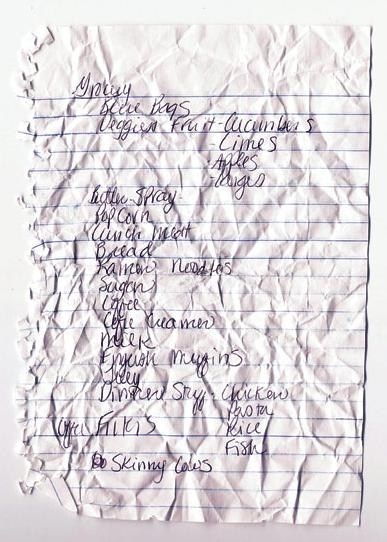 Blue Bags
Veggies Fruit-Cucumbers
-Limes
-Apples
Butter-Spray-
PopCorn
Lunch meat
Bread
Ramen Noodles
Sugar
Coffee
Coffee Creamer
Milk
English Muffins
Jelly
Dinner Stuff-Chicken
Pasta
Rice
Fish
Skinny Cows